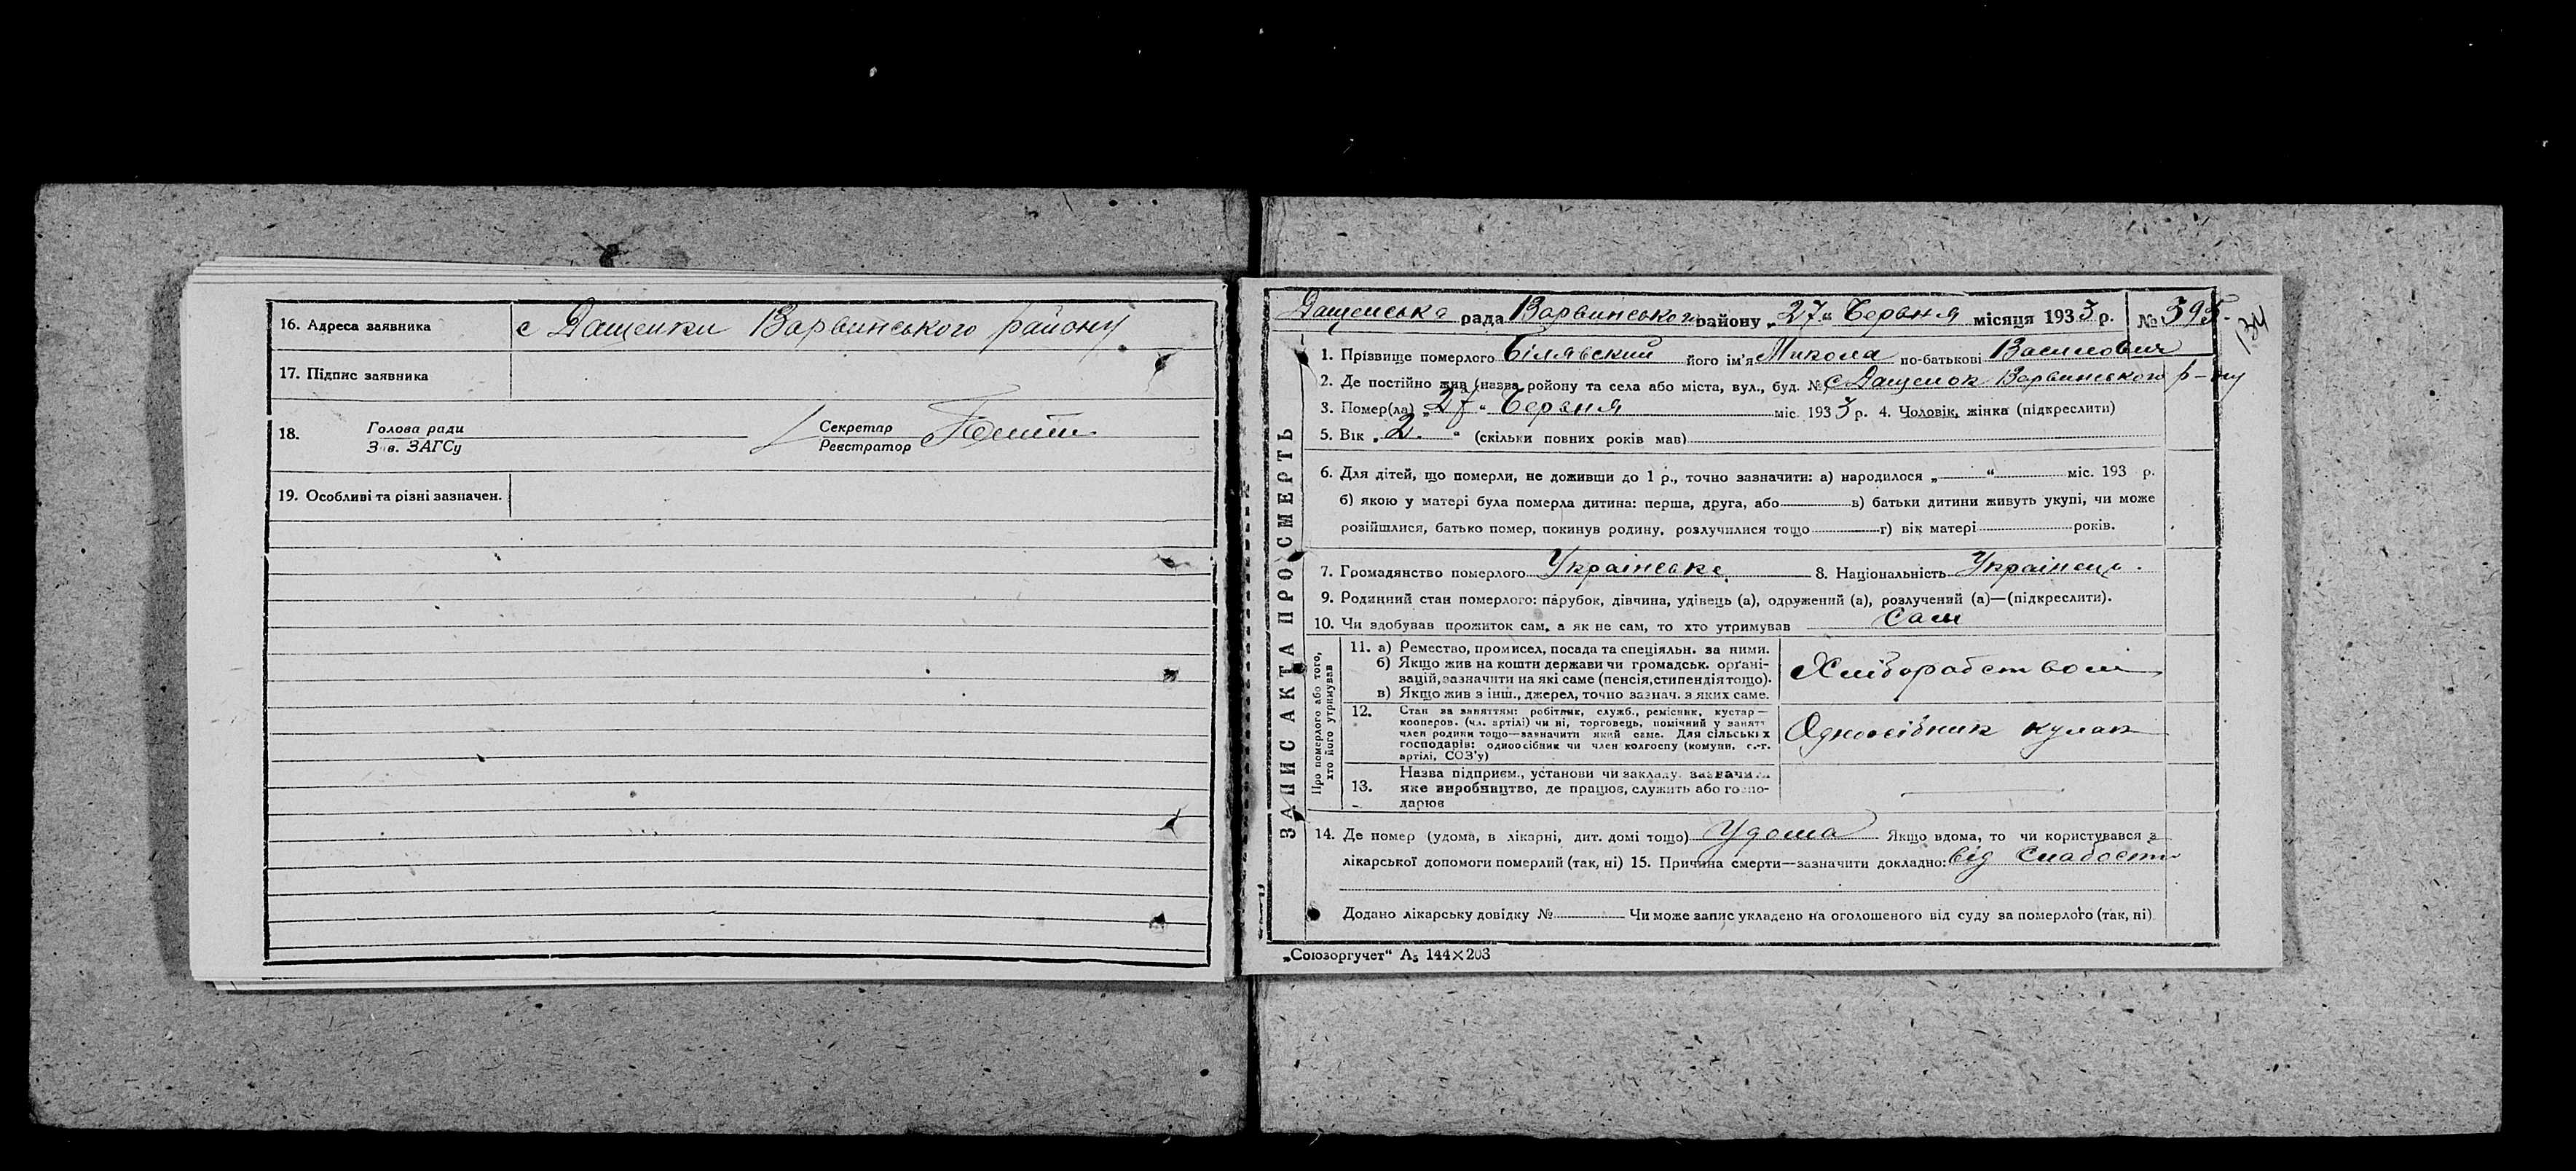 16. Адреса заявника с Дащенки Варвинського району
17. Підпис заявника
18. Голова ради Секретар
Зав. ЗАГСу Реєстратор
19. Особливі та різні зазначен.
Дащенська рада Варвинського району „27“ Червня місяця 1933 р. № 395.
134
ЗАПИС АКТА ПРО СМЕРТЬ
1. Прізвище померлого Білявский його ім'я Микола по-батькові Василович
2. Де постійно жив (назва ройону та села або міста, вул., буд. № с Дащенок Варвинського р-ну
3. Помер(ла) „27“ Червня міс. 1933 р. 4. Чоловік, жінка (підкреслити)
5. Вік „2.“ (скільки повних років мав)
6. Для дітей, що померли, не доживши до 1 р., точно зазначити: а) народилося „ “ міс. 193 р.
б) якою у матері була померла дитина: перша, друга, або в) батьки дитини живуть укупі, чи може
розійшлися, батько помер, покинув родину, розлучилися тощо г) вік матері років.
7. Громадянство померлого Українське 8. Національність Українець.
9. Родинний стан померлого: парубок, дівчина, удівець (а), одружений (а), розлучений (а)—(підкреслити).
10. Чи здобував прожиток сам, а як не сам, то хто утримував Сам
Про померлого або того,
хто його утримував
11. а) Ремество, промисел, посада та спеціяльн. за ними.
б) Якщо жив на кошти держави чи громадськ. органі-
зацій, зазначити на які саме (пенсія, стипендія тощо).
в) Якщо жив з інш., джерел, точно зазнач. з яких саме.
Хліборобством
12. Стан за заняттям: робітник, служб., ремісник, кустар—
кооперов. (чл. артілі) чи ні, торговець, помічний у занятт
член родини тощо—зазначити який саме. Для сільських
господарів: одноосібник чи член колгоспу (комуни, с.-г.
артілі, СОЗ'у)
Одноосібник кулак
13. Назва підприєм., установи чи закладу, зазначити
яке виробництво, де працює, служить або госпо-
дарює
14. Де помер (удома, в лікарні, дит. домі тощо) Удома Якщо вдома, то чи користувався з
лікарської допомоги померлий (так, ні) 15. Причина смерти—зазначити докладно: від слабости
Додано лікарську довідку № Чи може запис укладено на оголошеного від суду за померлого (так, ні)
„Союзоргучет“ А5 144×203